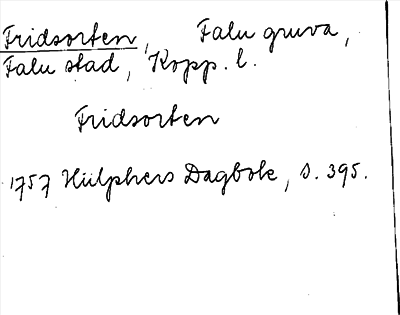 Fridsorten, Falu gruva,
Falu stad, Kopp. l.
Fridsorten
1757 Hülphers Dagbok, s. 395.